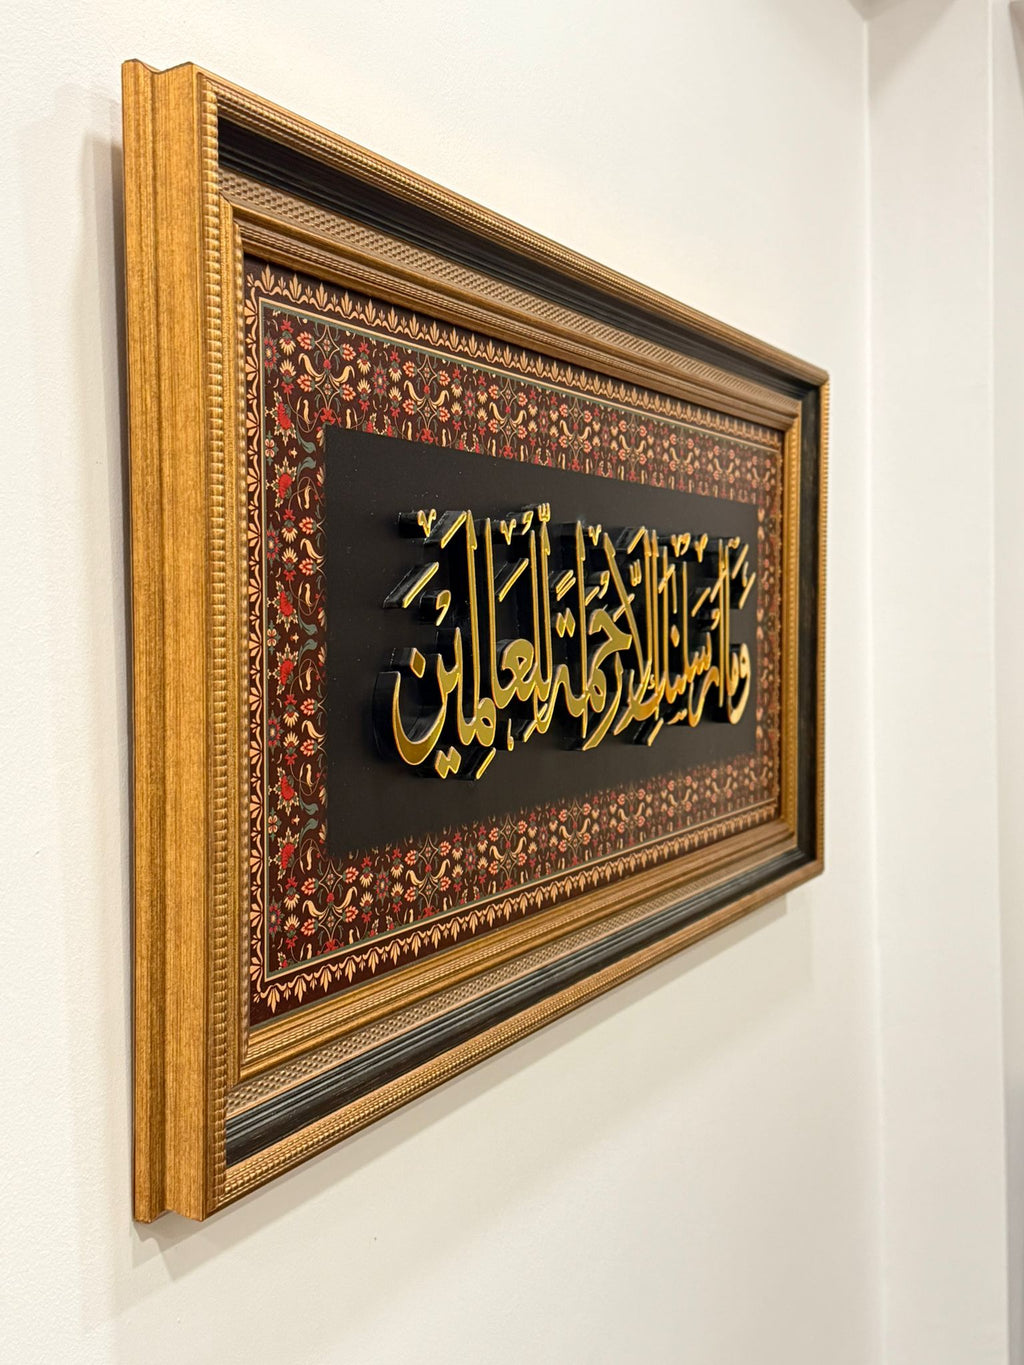 وَمَا أَرْسَلْنَاكَ إِلَّا رَحْمَةً لِّلْعَالَمِينَ